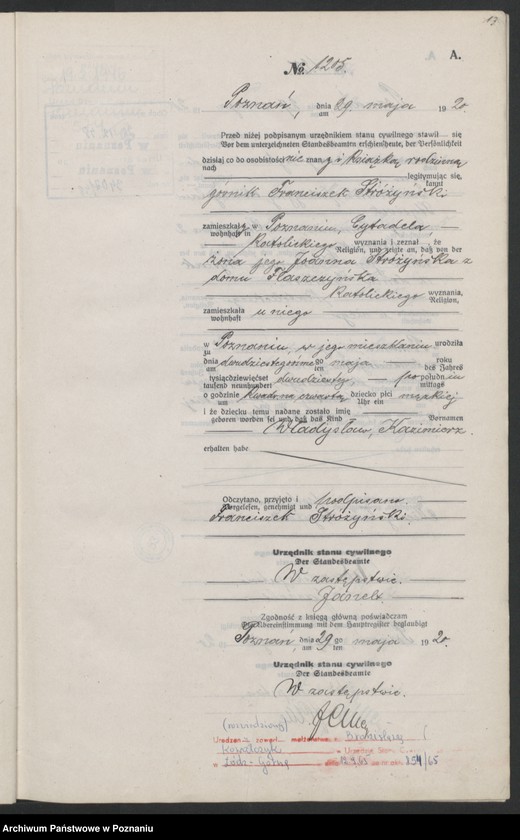 13
A.
No. 1205.
Poznań, dnia 29 maja 1920.
am
Przed niżej podpisanym urzędnikiem stanu cywilnego stawił się
Vor dem unterzeichneten Standesbeamten erschien heute, der Persönlichkeit
dzisiaj co do osobistości mąż i książką rodzinną
nach
legitymując się,
kannt
górnik Franciszek Stróżyński
zamieszkał y w Poznaniu, Cytadela,
wohnhaft in
katolickiego wyznania i zeznał, że
Religion, und zeigte an, daß von der
żona jego Joanna Stróżyńska z
domu Płaszczyńska
katolickiego wyznania,
Religion,
zamieszkała u niego
wohnhaft
w Poznaniu, w jego mieszkaniu urodziła
zu
dnia dwudziestego maja roku
am ten des Jahres
tysiącdziewięćset dwudziestego, po południu
tausend neunhundert mittags
o godzinie kwadra na czwartą dziecko płci męskiej
um Uhr ein
i że dziecku temu nadane zostało imię
geboren worden sei und daß das Kind Vornamen
Władysław, Kazimierz.
erhalten habe
Odczytano, przyjęto i podpisano.
Vorgelesen, genehmigt und
Franciszek Stróżyński.
Urzędnik stanu cywilnego
Der Standesbeamte
W zastępstwie.
Zgodność z księgą główną poświadczam
Übereinstimmung mit dem Hauptregister beglaubigt
Poznań, dnia 29 go maja 1920.
am ten
Urzędnik stanu cywilnego
Der Standesbeamte
W zastępstwie.
małżeństwo
Kowalczyk
Łódź - Górną
154/65
Archiwum Państwowe w Poznaniu